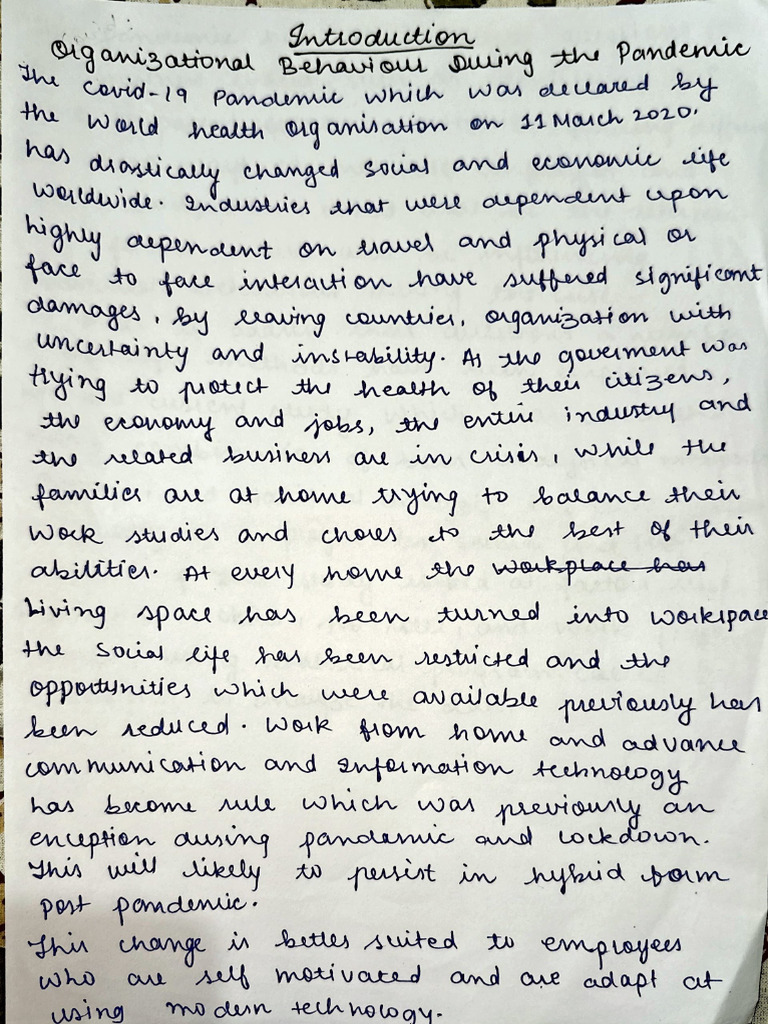 Introduction
Organizational Behaviour During the Pandemic
The Covid-19 Pandemic which was declared by
the World health Organisation on 11 March 2020.
has drastically changed social and economic life
worldwide. Industries that were dependent upon
highly dependent on travel and physical or
face to face interaction have suffered significant
damages, by leaving countries, organization with
uncertainty and instability. As the goverment was
trying to protect the health of their citizens,
the economy and jobs, the entire industry and
the related business are in crisis, while the
families are at home trying to balance their
work studies and chores to the best of their
abilities. At every home the workplace has
Living space has been turned into workspace
the social life has been restricted and the
opportunities which were available previously has
been reduced. Work from home and advance
communication and Information technology
has become rule which was previously an
enception during pandemic and lockdown.
This will likely to persist in hybrid form
post pandemic.
This change is better suited to employees
who are self motivated and are adapt at
using modern technology.